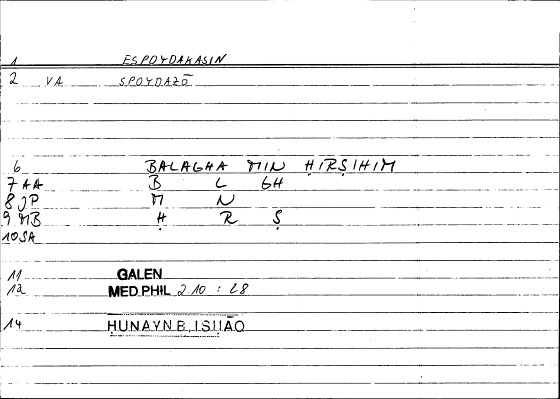 1 ESPOYDAKASIN
2 VA SPOYDAZŌ
6 BALAGHA MIN ḤIRṢIHIM
7 AA B L GH
8 JP M N
9 MB Ḥ R Ṣ
10 SA
11 GALEN
12 MED.PHIL 2.10 : 28
14 ḤUNAYN B. ISḤĀQ